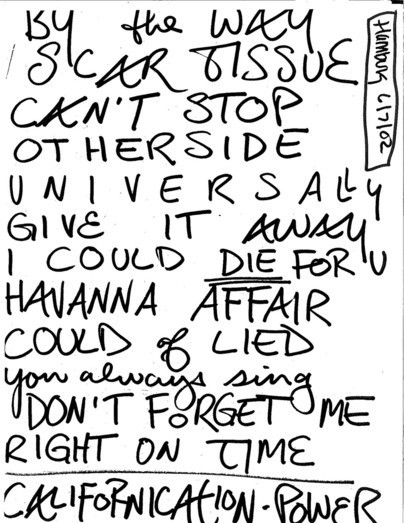 BY the WAY
SCAR TISSUE
CAN'T STOP
OTHERSIDE
UNIVERSALLY
GIVE IT AWAY
I COULD DIE FOR U
HAVANNA AFFAIR
COULD of LIED
you always sing
DON'T FORGET ME
RIGHT ON TIME
CALIFORNICATION·POWER
Hamburg 6/7/02